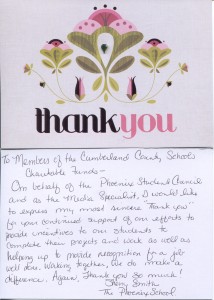 thankyou
To Members of the Cumberland County Schools
Charitable Funds-
On behalf of the Phoenix Student Council
and as the Media Specialist, I would like
to express my most sincere "Thank you"
for your continued support of our efforts to
provide incentives to our students to
complete their projects and work as well as
helping us to provide recognition for a job
well done. Working together, we do make a
difference. Again, thank you so much!
Smith
The Phoenix School